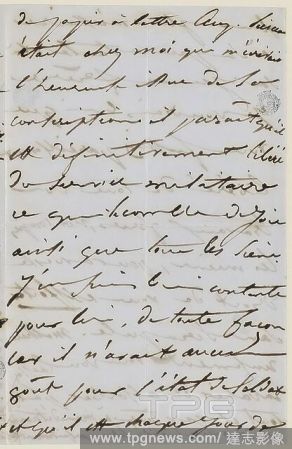 de joyeux à lettre Aug.
était chez moi qui m'écrivit
l'heureuse issue de la
conscription il paraît qu'il
est définitivement libéré
du service militaire
ce qui le comble de joie
ainsi que tous les siens
j'en suis bien contente
pour lui, de toute façon
car il n'avait aucun
goût pour l'état de soldat
et qu'il est chaque jour de
TPG
www.tpgnews.com / 達志影像